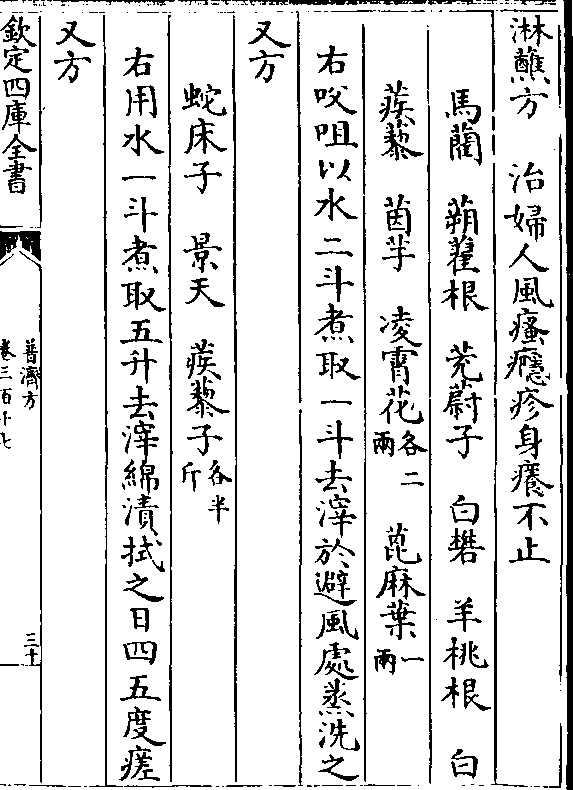 淋蘸方　治婦人風瘙癮疹身癢不止
馬藺　蒴藋根　茺蔚子　白礬　羊桃根　白
蒺藜　茵芋　凌霄花各二兩　蓖麻葉一兩
右㕮咀以水二斗煮取一斗去滓於避風處蒸洗之
又方
蛇床子　景天　蒺藜子各半斤
右用水一斗煮取五升去滓綿漬拭之日四五度瘥
又方
欽定四庫全書
普濟方
卷三百十七
三十